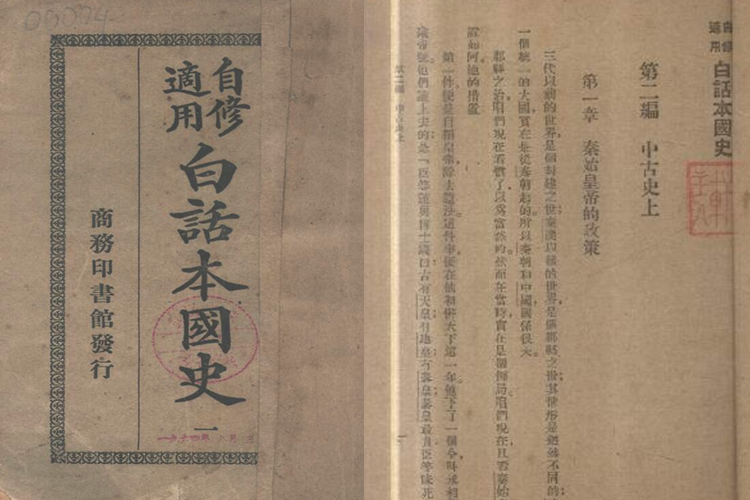 自修
適用
白話本國史
一
商務印書館發行
自修
適用
白話本國史
第二編 中古史上
第一章 秦始皇帝的政策
三代以前的世界,是個封建之世;秦漢以後的世界,是個郡縣之世;其情形是迥然不同的。
一個統一的大國,實在是從秦朝起的。所以秦朝和中國關係很大。
郡縣之治,咱們現在看慣了,以爲當然的。然而在當時,實在是個創局。咱們現在,且看秦始
如何他的措置
第一件便是自稱皇帝,除去謚法。這件事便在他初併天下這一年。他下了一個令叫丞相
議帝號。他們議上去的是「臣等謹與博士議曰:古有天皇,有地皇,有泰皇,泰皇最貴。臣等昧死
第二編 中古史上 一